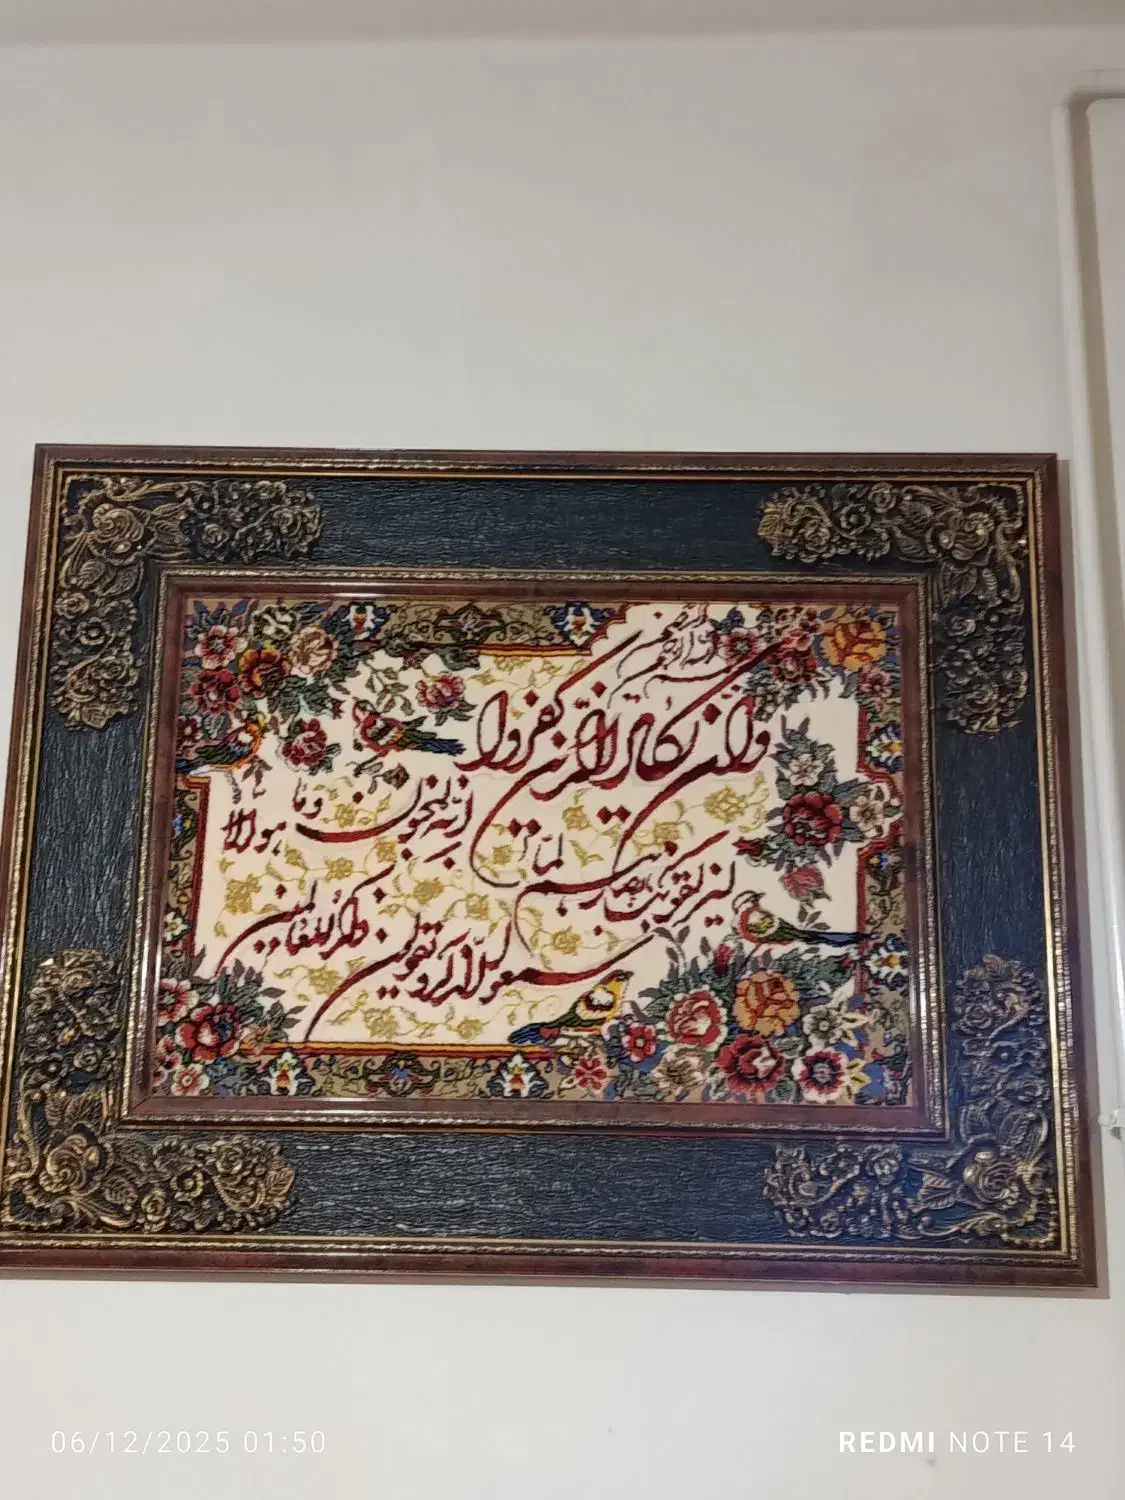 بسم الله الرحمن الرحیم
وان یکاد الذین کفروا
لیزلقونک بابصارهم لما
سمعوا الذکر و یقولون
انه لمجنون و ما هو الا
ذکر للعالمین
06/12/2025 01:50
REDMI NOTE 14